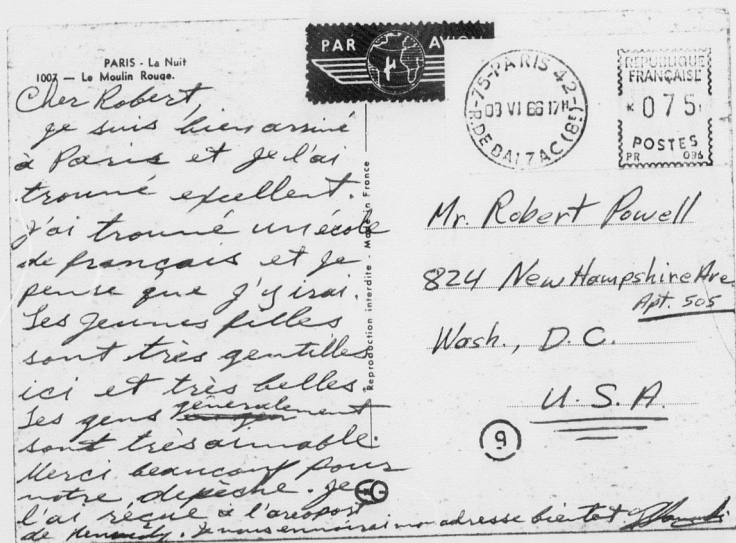 PARIS - La Nuit
1007 — Le Moulin Rouge.
PAR AVION
75-PARIS 42
03 VI 66 17H
R. DE BALZAC (8E)
REPUBLIQUE
FRANÇAISE
075
POSTES
PR 096
Cher Robert,
Je suis bien arrivé
à Paris et je l'ai
trouvé excellent.
J'ai trouvé un école
de français et je
pense que j'y irai.
Les jeunes filles
sont très gentilles
ici et très belles.
Les gens généralement
sont très aimable.
Merci beaucoup pour
votre dépèche. Je
l'ai reçue à l'areoport
de Kennedy. Je vous enverrai mon adresse bientot
Reproduction interdite - Made in France
Mr. Robert Powell
824 New Hampshire Ave.
Apt. 505
Wash., D.C.
U.S.A.
9